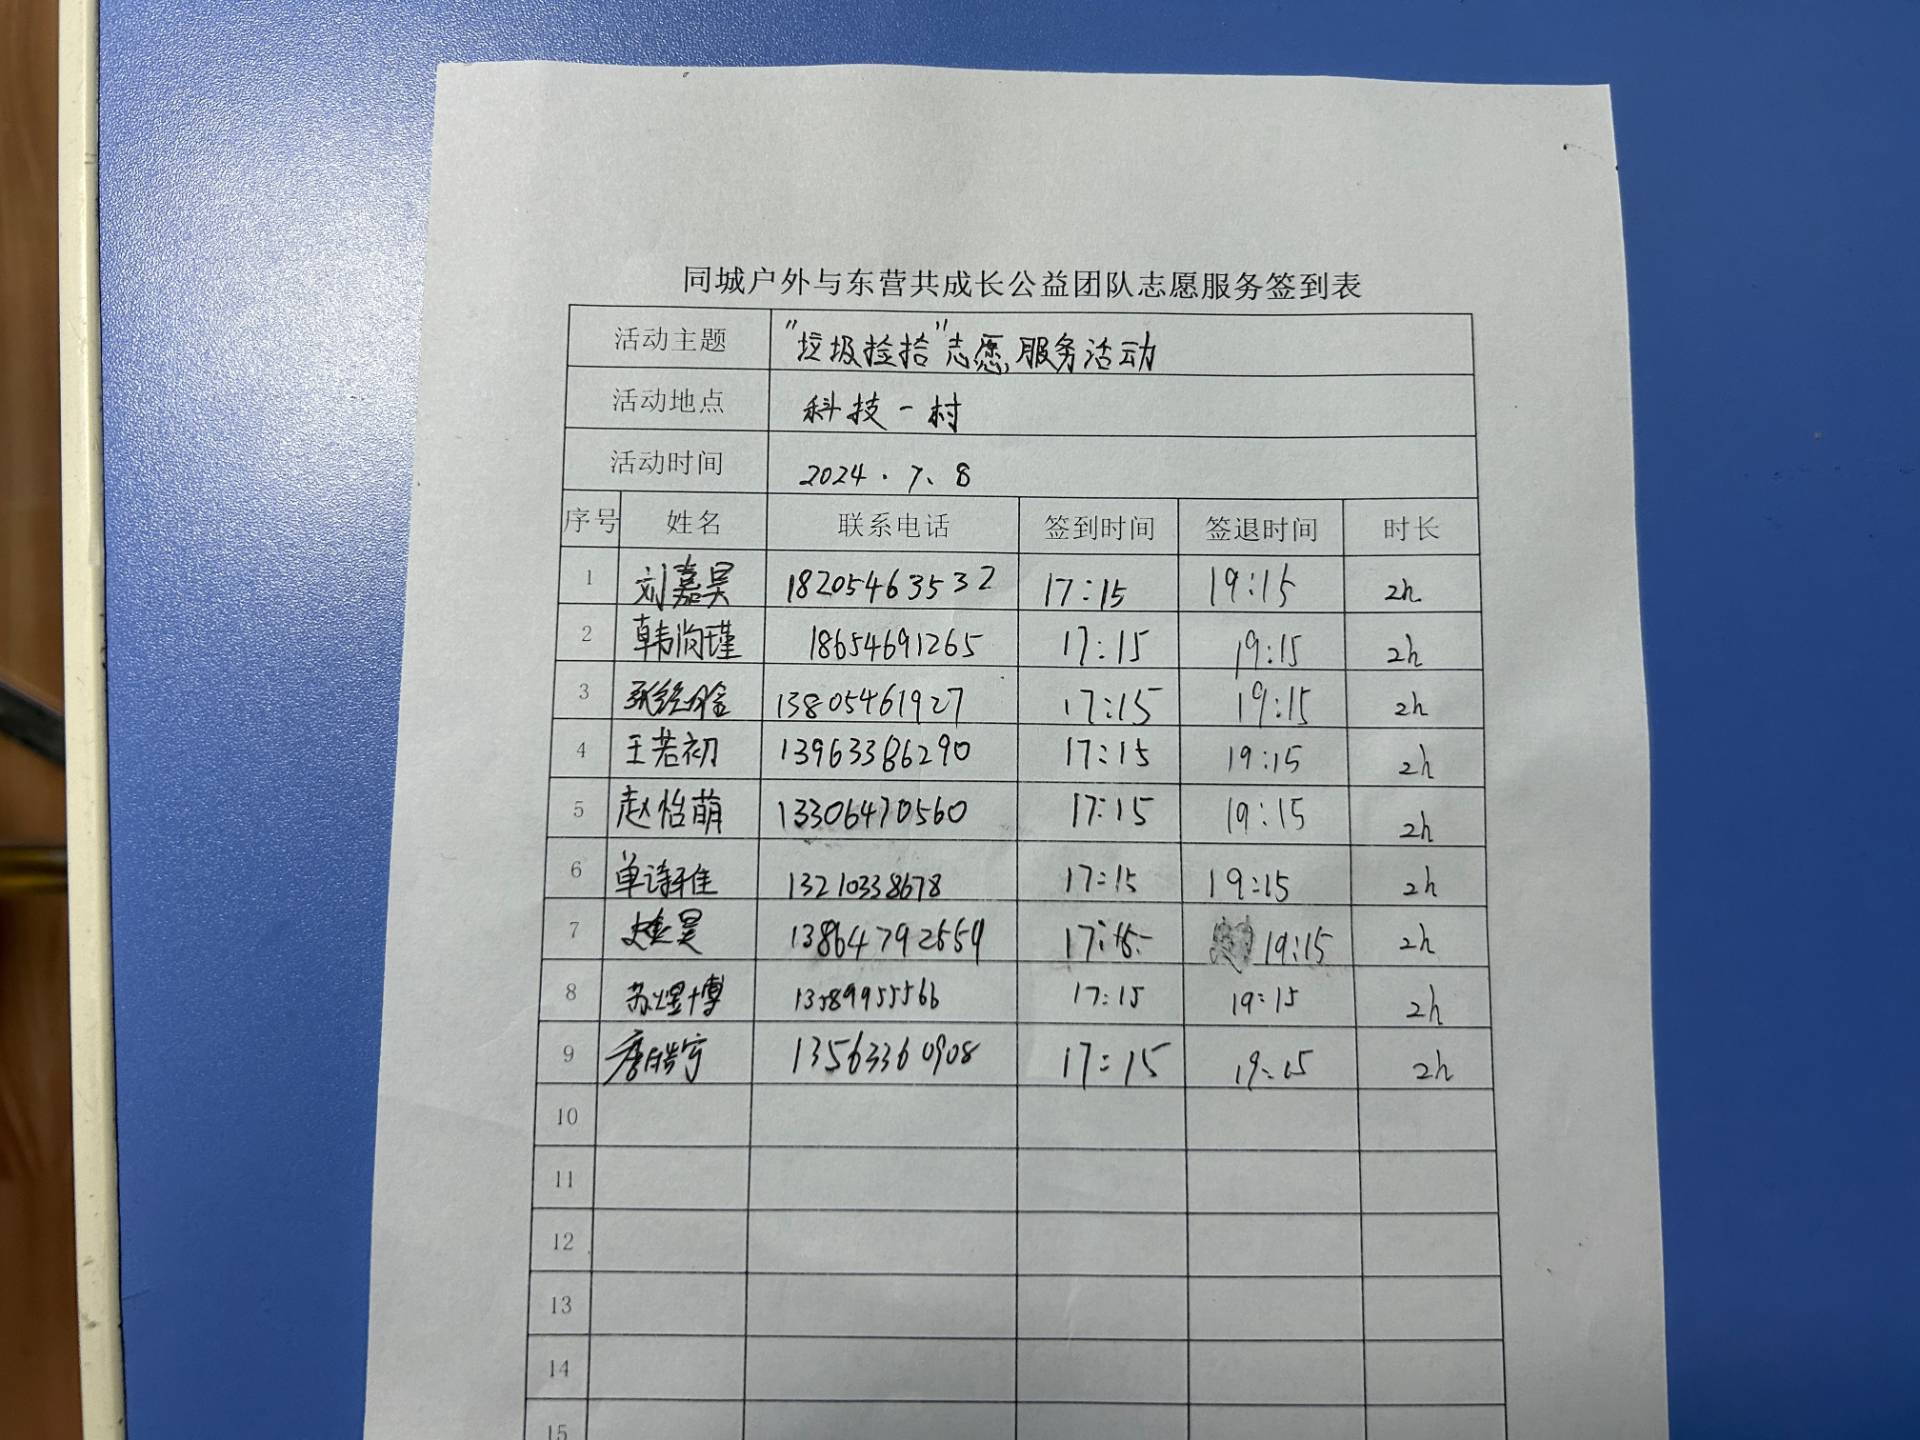 同城户外与东营共成长公益团队志愿服务签到表
活动主题 "垃圾捡拾"志愿服务活动
活动地点 科技一村
活动时间 2024.7、8
序号 姓名 联系电话 签到时间 签退时间 时长
1 刘嘉昊 18205463532 17:15 19:15 2h
2 韩尚瑾 18654691265 17:15 19:15 2h
3 13805461927 17:15 19:15 2h
4 王若初 13963386290 17:15 19:15 2h
5 赵怡萌 13306470560 17:15 19:15 2h
6 单诗雅 13210338678 17:15 19:15 2h
7 13864792559 17:15 19:15 2h
8 苏煜博 13589955566 17:15 19:15 2h
9 唐皓宇 13563360908 17:15 19:15 2h
10
11
12
13
14
15